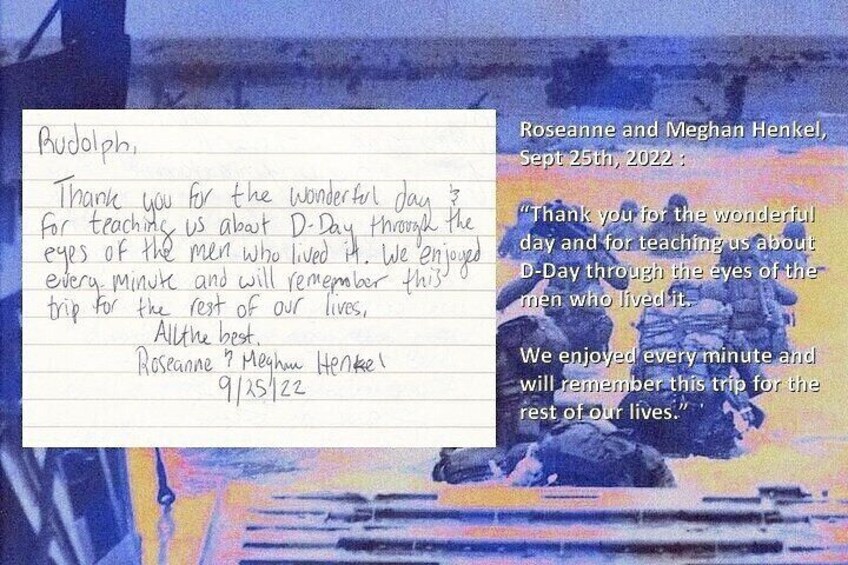 Rudolph,
Thank you for the wonderful day &
for teaching us about D-Day through the
eyes of the men who lived it. We enjoyed
every minute and will remember this
trip for the rest of our lives.
All the best,
Roseanne & Meghan Henkel
9/25/22
Roseanne and Meghan Henkel,
Sept 25th, 2022 :
“Thank you for the wonderful
day and for teaching us about
D-Day through the eyes of the
men who lived it.
We enjoyed every minute and
will remember this trip for the
rest of our lives.”